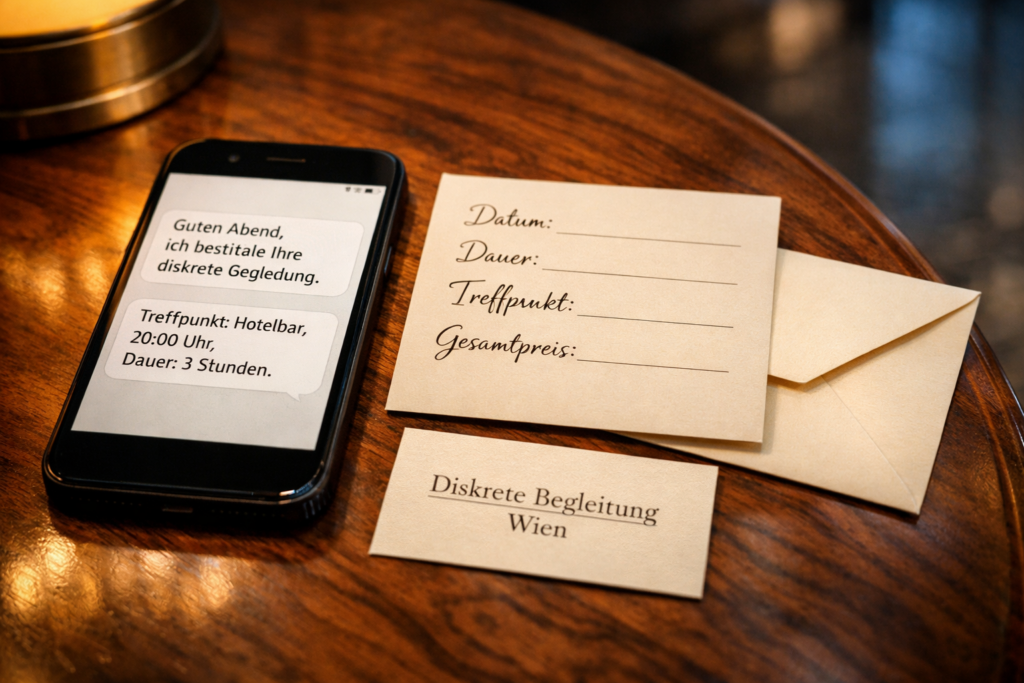 Guten Abend,
ich bestitale Ihre
diskrete Gegledung.
Treffpunkt: Hotelbar,
20:00 Uhr,
Dauer: 3 Stunden.
Datum:
Dauer:
Treffpunkt:
Gesamtpreis:
Diskrete Begleitung
Wien